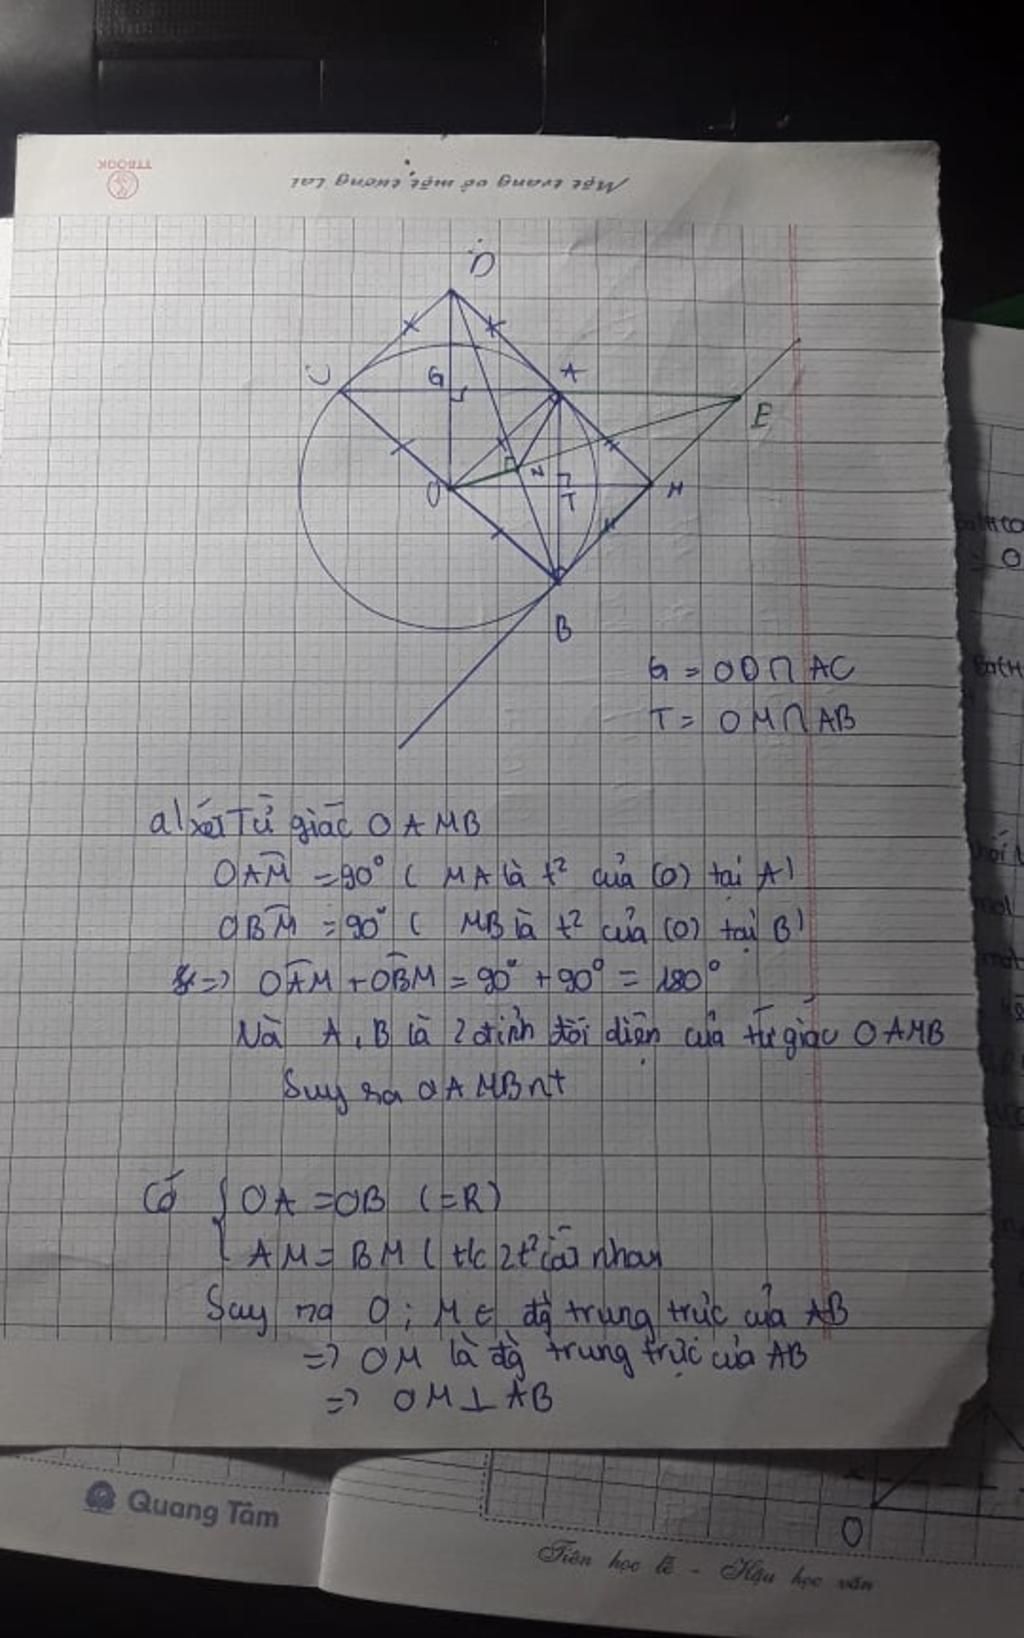 TTBOOK
Một trang vở một tương lai
D
C
G
A
E
O
N
M
T
B
G = OD∩ AC
T = OM∩AB
a/ xét Tứ giác OAMB
OAM = 90° ( MA là t² của (O) tại A)
OBM = 90° ( MB là t² của (O) tại B)
=> OAM + OBM = 90° + 90° = 180°
Mà A, B là 2 đỉnh đối diện của tứ giác OAMB
Suy ra OAMB nt
Có { OA = OB (=R)
AM = BM ( t/c 2t² cắt nhau
Suy ra O; M ∈ đg trung trực của AB
=> OM là đg trung trực của AB
=> OM ⊥ AB
Quang Tâm
O
Tiên học lễ - Hậu học văn